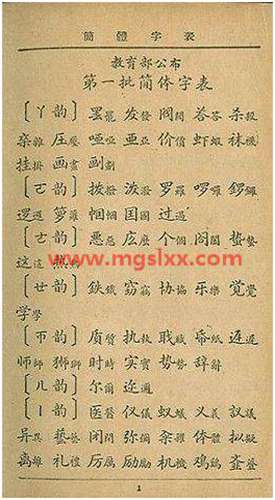 簡體字表
教育部公布
第一批简体字表
〔ㄚ韵〕罢罷 发發 阀閥 荅答 杀殺
杂雜 压壓 哑啞 亚亞 价價 虾蝦 袜襪
挂掛 画畫 劃
〔ㄛ韵〕拨撥 泼潑 罗羅 啰囉 锣鑼
逻邏 箩籮 帼幗 国國 过過
〔ㄜ韵〕恶惡 庅麼 个個 阁閣 蛰蟄
这這 热熱
www.mgslxx.com
〔ㄝ韵〕鉄鐵 窃竊 协協 乐樂 觉覺
学學
〔ㄭ韵〕质質 执執 职職 帋紙 迟遲
师師 狮獅 时時 实實 势勢 辞辭
〔ㄦ韵〕尔爾 迩邇
〔ㄧ韵〕医醫 仪儀 蚁蟻 义義 议議
异異 艺藝 闭閉 弥彌 籴糴 体體 拟擬
离離 礼禮 厉厲 励勵 机機 鸡鷄
1